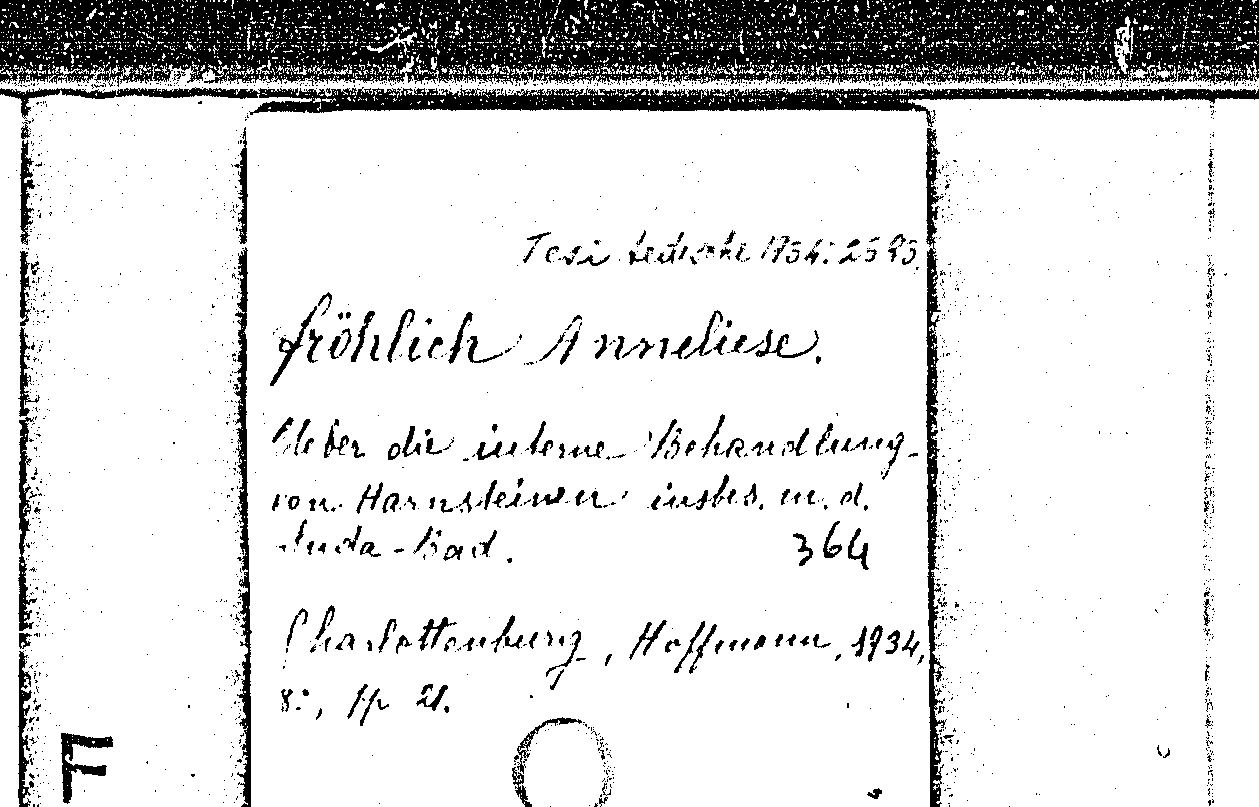 Tesi tedesche 1934: 2595.
Fröhlich Anneliese.
Ueber die interne Behandlung
von Harnsteinen insbes. m. d.
Suda-Bad.
364
Charlottenburg, Hoffmann, 1934,
8°, pp 21.
F